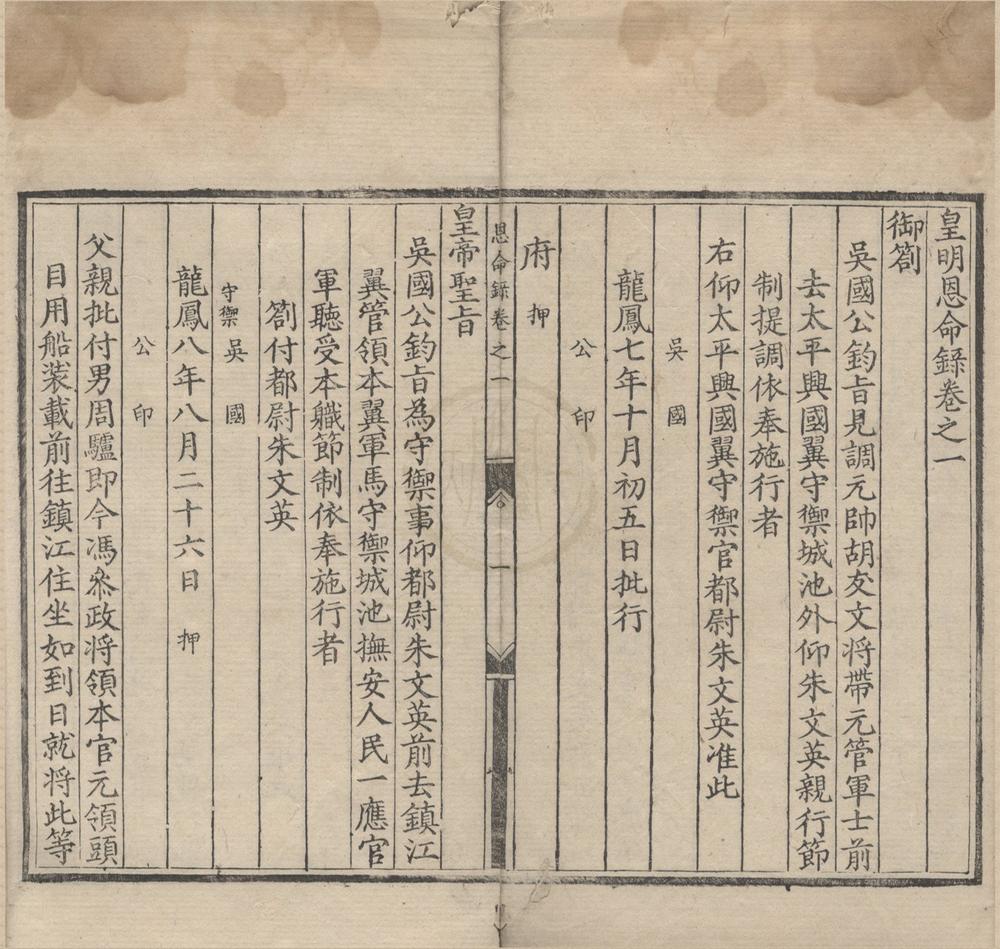 皇明恩命録卷之一
御劄
吳國公鈞旨見調元帥胡友文將帶元管軍士前
去太平興國翼守禦城池外仰朱文英親行節
制提調依奉施行者
右仰太平興國翼守禦官都尉朱文英准此
吳 國
龍鳳七年十月初五日批行
公 印
府 押
恩命錄卷之一 一
皇帝聖旨
吳國公鈞旨為守禦事仰都尉朱文英前去鎮江
翼管領本翼軍馬守禦城池撫安人民一應官
軍聽受本職節制依奉施行者
劄付都尉朱文英
守禦吳 國
龍鳳八年八月二十六日 押
公 印
父親批付男周驢即今馮叅政將領本官元領頭
目用船裝載前往鎮江住坐如到日就將此等